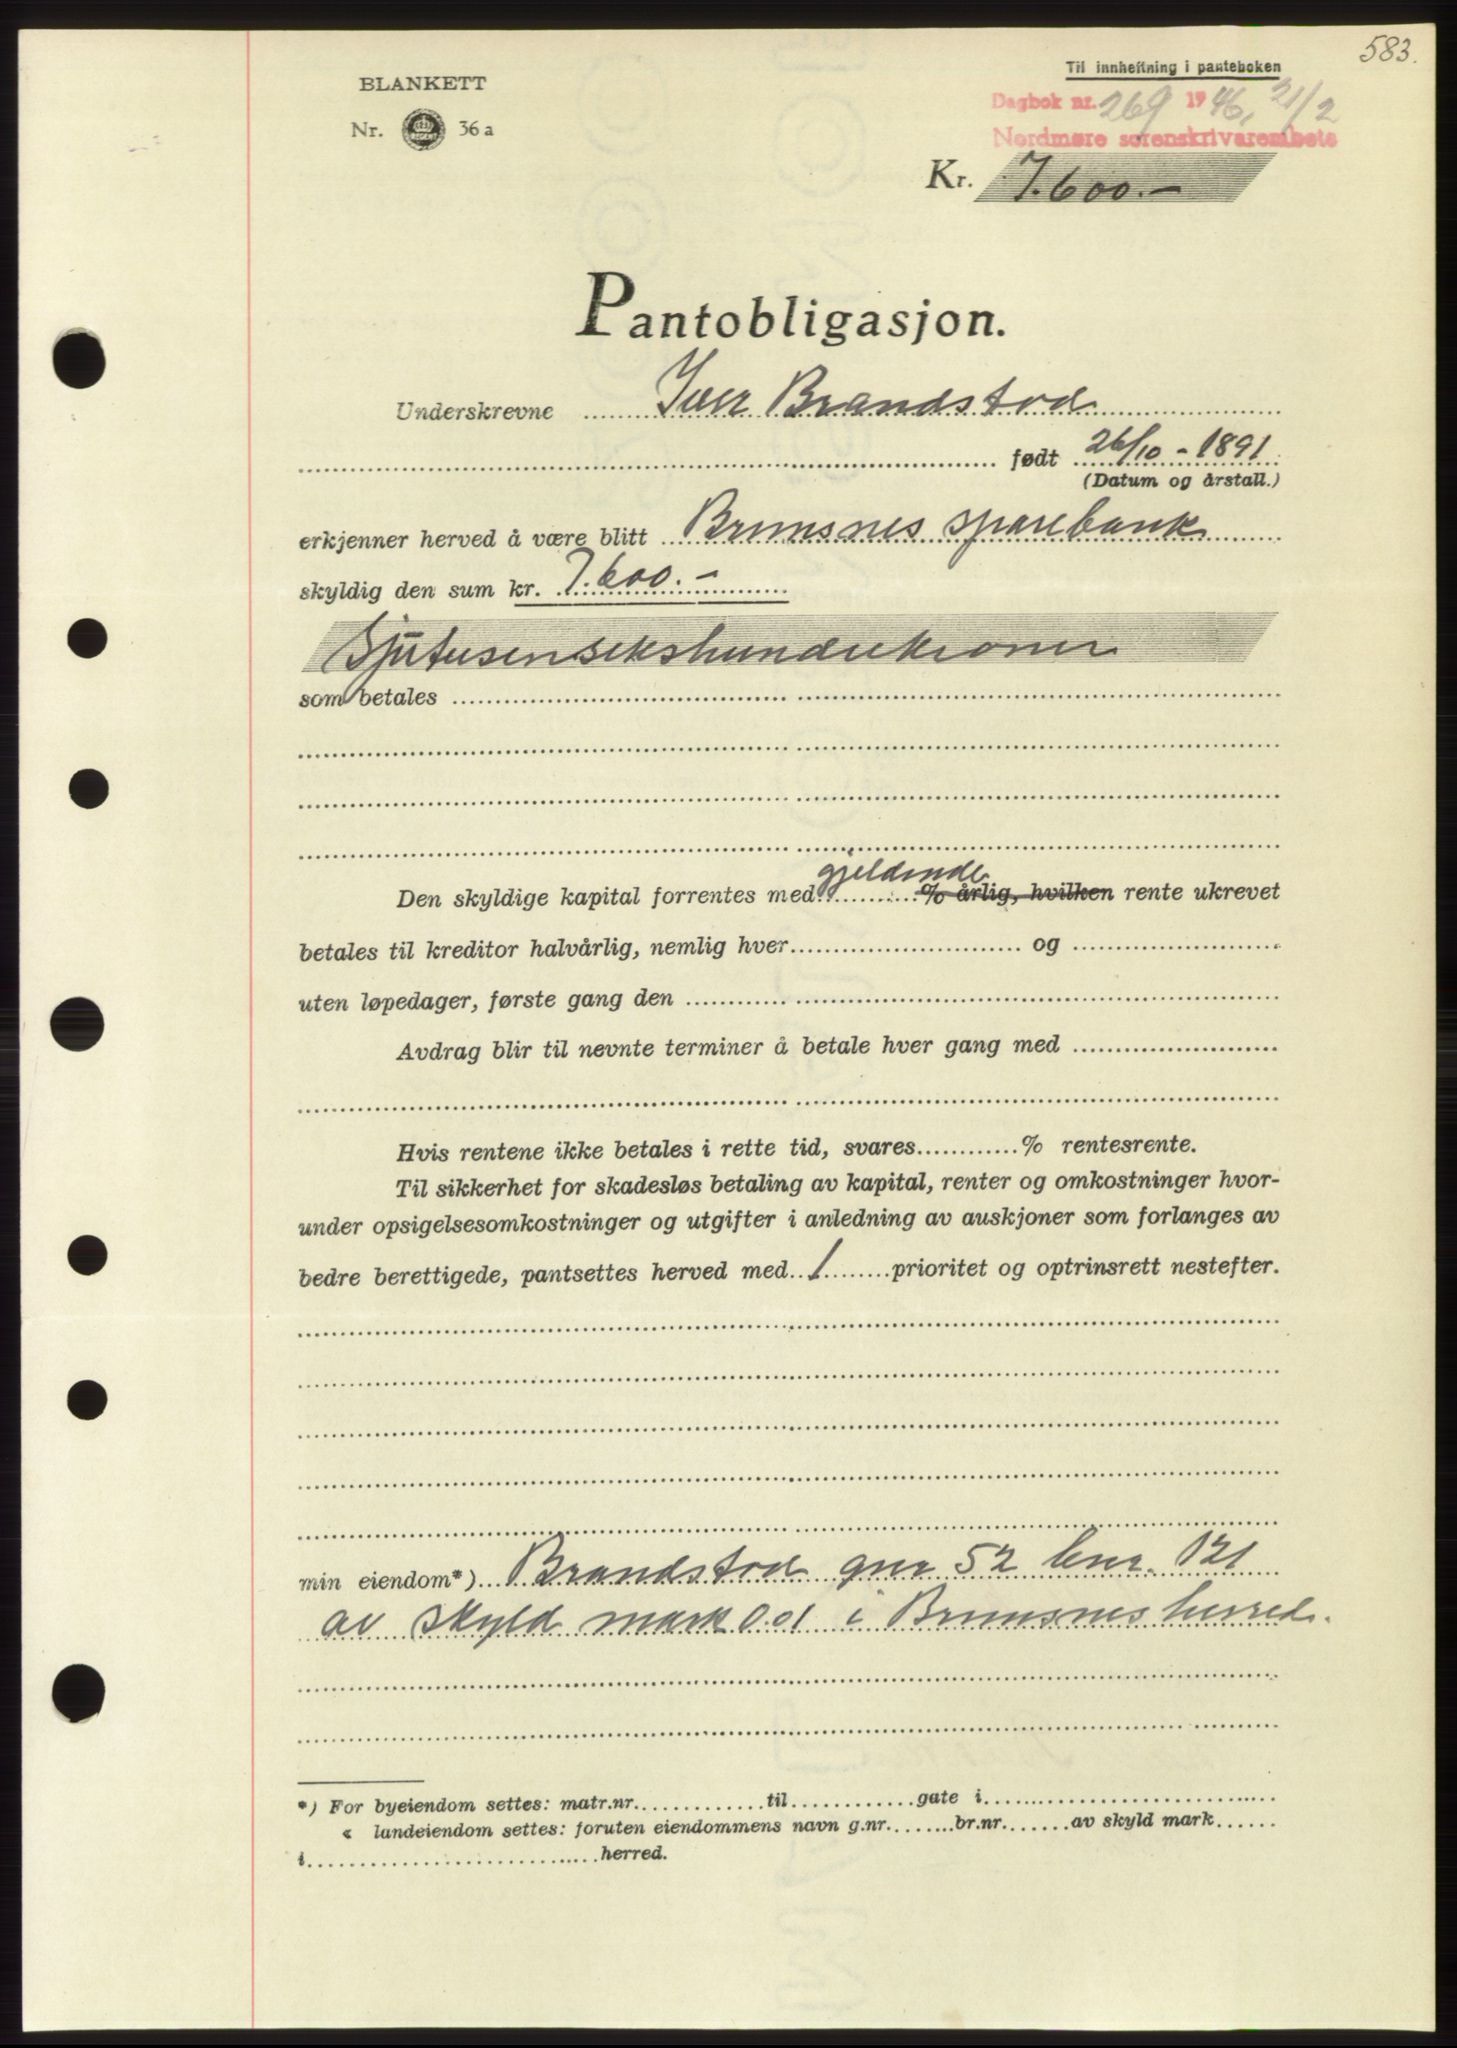 583.
Til innheftning i panteboken
BLANKETT
Dagbok nr. 269 1946, 21/2
Nr. 36 a
Nordmøre sorenskrivarembete
Kr. 7.600.-
Pantobligasjon.
Underskrevne Iver Brandstad
født 26/10 - 1891
(Datum og årstall.)
erkjenner herved å være blitt Bremsnes sparebank
skyldig den sum kr. 7.600.-
Sjutusensekshundrekroner
som betales
gjeldende
Den skyldige kapital forrentes med % årlig, hvilken rente ukrevet
betales til kreditor halvårlig, nemlig hver og
uten løpedager, første gang den
Avdrag blir til nevnte terminer å betale hver gang med
Hvis rentene ikke betales i rette tid, svares % rentesrente.
Til sikkerhet for skadesløs betaling av kapital, renter og omkostninger hvor-
under opsigelsesomkostninger og utgifter i anledning av auskjoner som forlanges av
bedre berettigede, pantsettes herved med 1 prioritet og optrinsrett nestefter.
min eiendom*) Brandstad gnr 52 bnr. 121
av skyld mark 0.01 i Bremsnes herred.
*) For byeiendom settes: matr.nr. til gate i
« landeiendom settes: foruten eiendommens navn g.nr. br.nr. av skyld mark
i herred.